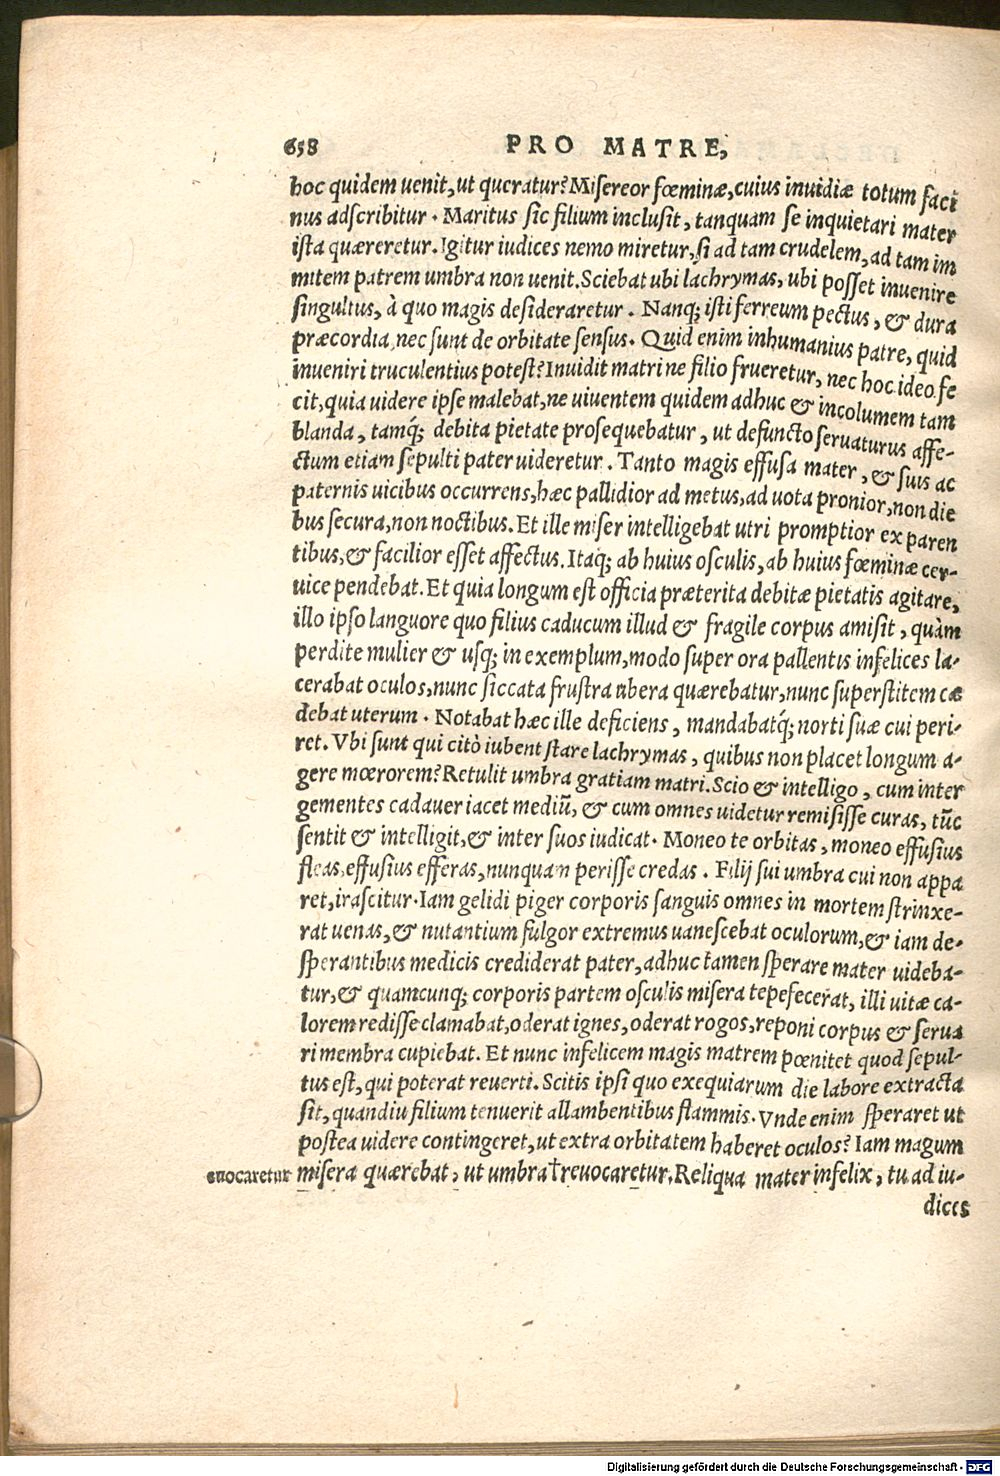 658 PRO MATRE,
hoc quidem uenit, ut queratur? Misereor fœminæ, cuius inuidiæ totum faci
nus adscribitur. Maritus sic filium inclusit, tanquam se inquietari mater
ista quæreretur. Igitur iudices nemo miretur, si ad tam crudelem, ad tam im
mitem patrem umbra non uenit. Sciebat ubi lachrymas, ubi posset inuenire
singultus, à quo magis desideraretur. Nanq; isti ferreum pectus, & dura
præcordia, nec sunt de orbitate sensus. Quid enim inhumanius patre, quid
inueniri truculentius potest? Inuidit matri ne filio frueretur, nec hoc ideo fe
cit, quia uidere ipse malebat, ne uiuentem quidem adhuc & incolumem tam
blanda, tamq́; debita pietate prosequebatur, ut defuncto seruaturus affe-
ctum etiam sepulti pater uideretur. Tanto magis effusa mater, & suis ac
paternis uicibus occurrens, hæc pallidior ad metus, ad uota pronior, non die
bus secura, non noctibus. Et ille miser intelligebat utri promptior ex paren
tibus, & facilior esset affectus. Itaq; ab huius osculis, ab huius fœminæ cer-
uice pendebat. Et quia longum est officia præterita debitæ pietatis agitare,
illo ipso languore quo filius caducum illud & fragile corpus amisit, quàm
perdite mulier & usq; in exemplum, modo super ora pallentis infelices la-
cerabat oculos, nunc siccata frustra ubera quærebatur, nunc superstitem cæ
debat uterum. Notabat hæc ille deficiens, mandabatq́; norti suæ cui peri-
ret. Vbi sunt qui citò iubent stare lachrymas, quibus non placet longum a-
gere mœrorem? Retulit umbra gratiam matri. Scio & intelligo, cum inter
gementes cadauer iacet mediū, & cum omnes uidetur remisisse curas, tūc
sentit & intelligit, & inter suos iudicat. Moneo te orbitas, moneo effusius
fleas, effusius efferas, nunquam perisse credas. Filij sui umbra cui non appa
ret, irascitur. Iam gelidi piger corporis sanguis omnes in mortem strinxe-
rat uenas, & nutantium fulgor extremus uanescebat oculorum, & iam de-
sperantibus medicis crediderat pater, adhuc tamen sperare mater uideba-
tur, & quamcunq; corporis partem osculis misera tepefecerat, illi uitæ ca-
lorem redisse clamabat, oderat ignes, oderat rogos, reponi corpus & serua
ri membra cupiebat. Et nunc infelicem magis matrem pœnitet quod sepul-
tus est, qui poterat reuerti. Scitis ipsi quo exequiarum die labore extracta
sit, quandiu filium tenuerit allambentibus flammis. Vnde enim speraret ut
postea uidere contingeret, ut extra orbitatem haberet oculos? Iam magum
euocaretur misera quærebat, ut umbra †reuocaretur. Reliqua mater infelix, tu ad iu-
dices
Digitalisierung gefördert durch die Deutsche Forschungsgemeinschaft - DFG